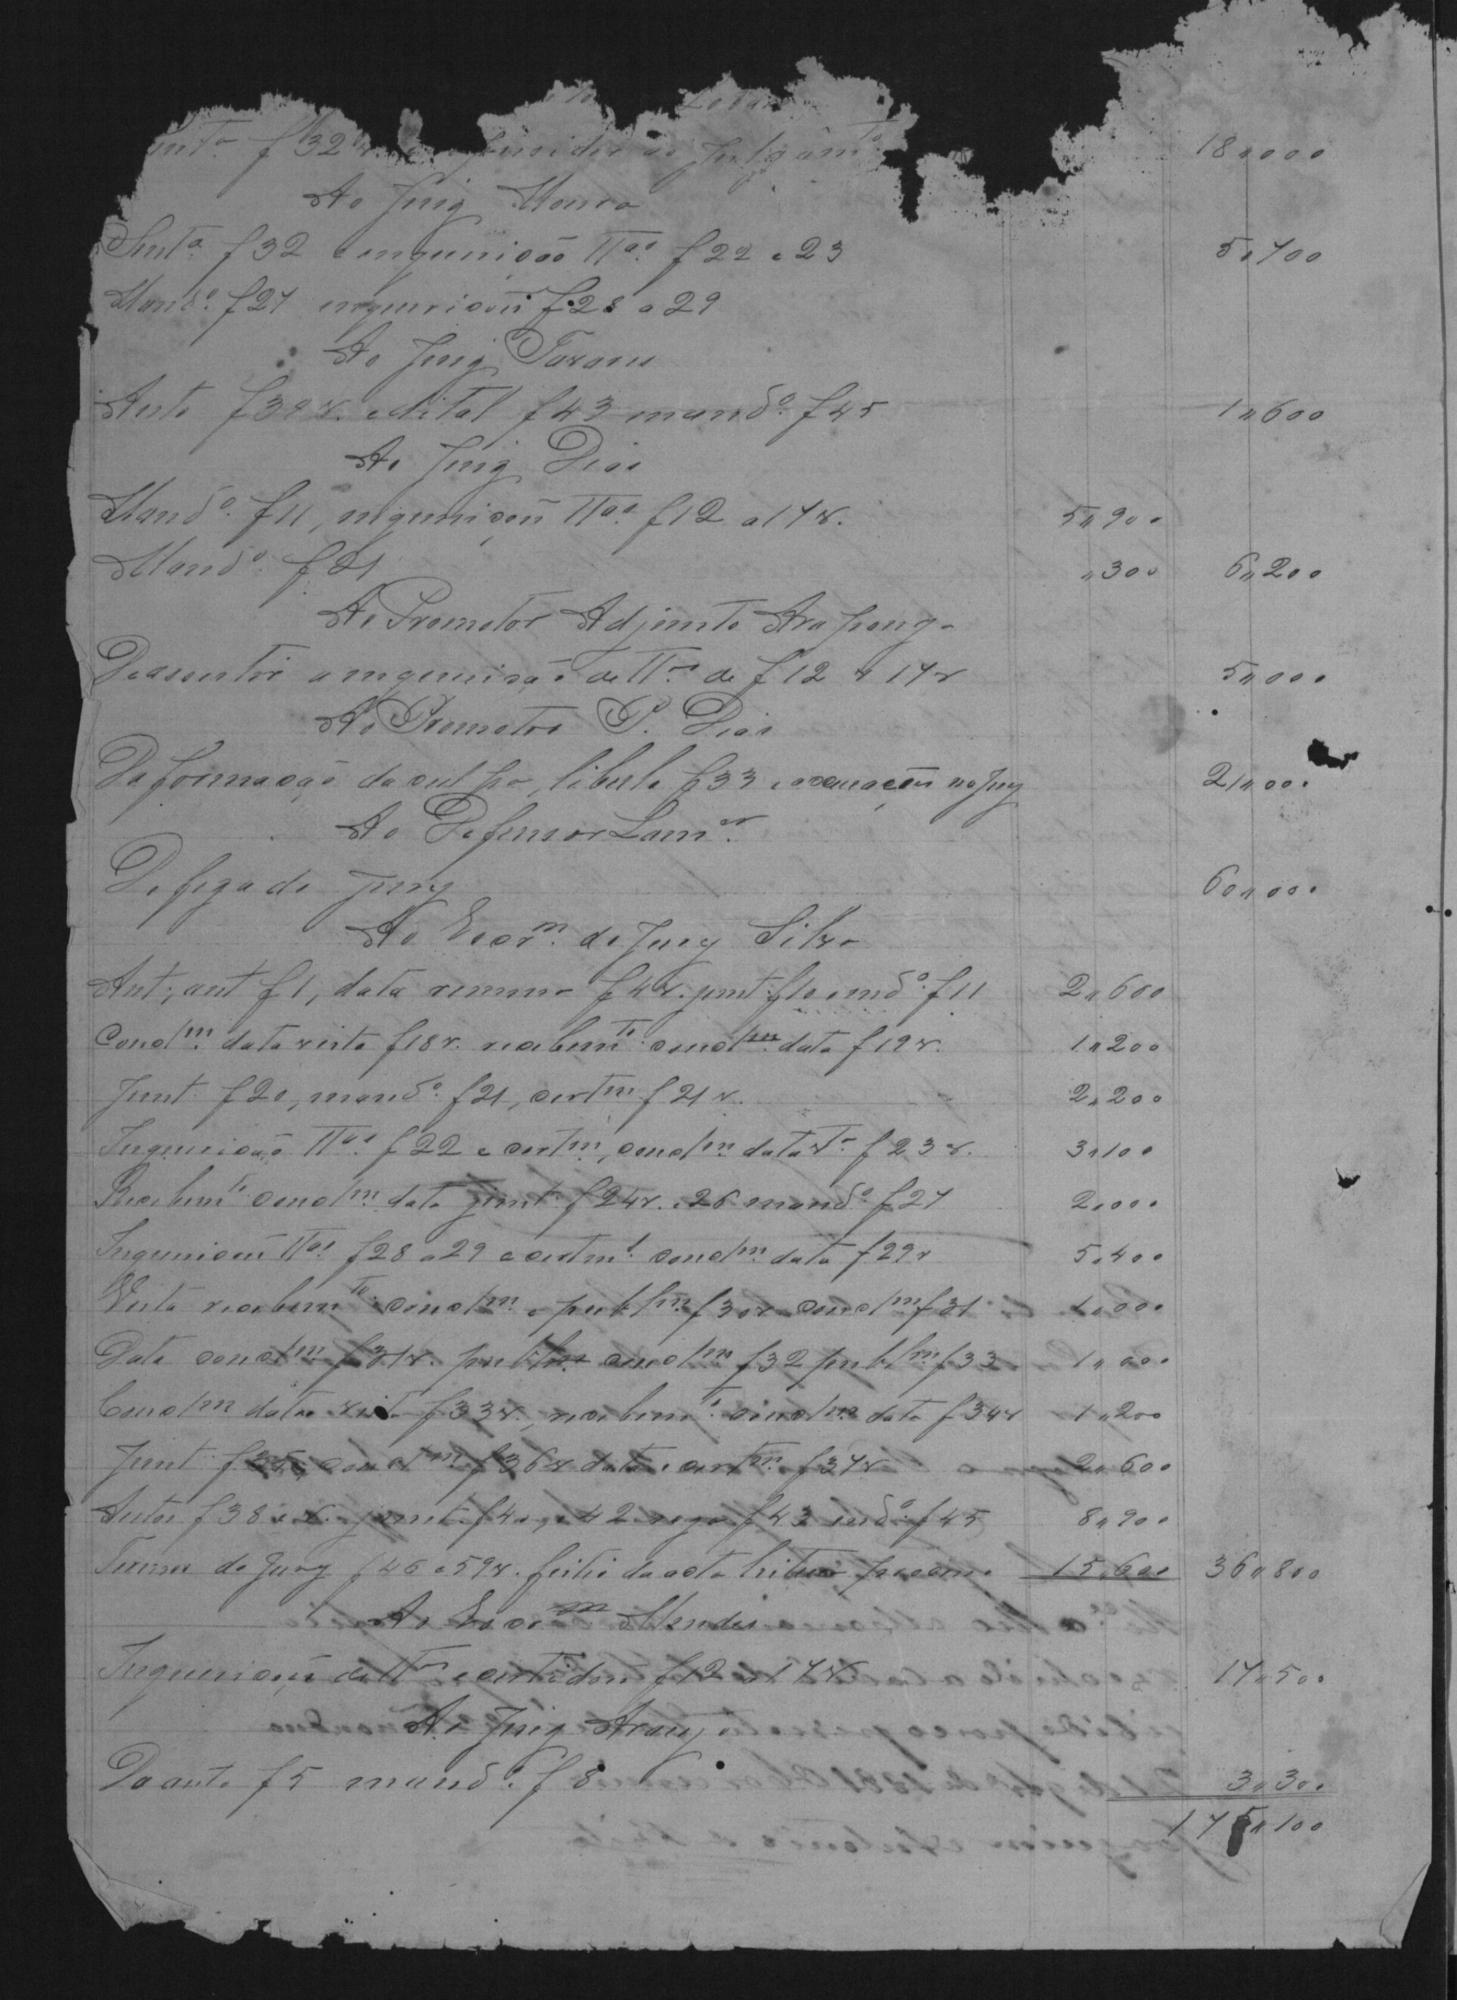 f 32 presidir ao Julgam.to 18,,000
Ao Juiz Moura
Sent.a f 32 e inquirição TT.as f 22 e 23 5,,700
Mand.o f 27 inquirição f 28 a 29
Ao Juiz
Auto f 39 v. edital f 43 mand.o f 45 1,,600
Ao Juiz Dias
Mand.o f 11, inquirição TT.as f 12 a 17 v. 5,,900
Mand.o f 21 ,,300 6,,200
Ao Promotor Adjunto Araponga
De assistir a inquirição de TT.as de f 12 a 17 v 5,,000
Ao Promotor P. Dias
Da formação da culpa, libello f 33 e accusação no Jury 21,,000
Ao Defensor
Defeza do Jury 60,,000
Ao Escr.m do Jury Silva
Aut., aut f 1, data remessa f 4 v. junt. f 10 e md.o f 11 2,,600
Concl.m data vista f 18 v. recebim.to concl.m data f 19 v. 1,,200
Junt. f 20, mand.o f 21, cert.m f 21 v. 2,,200
Inquirição TT.as f 22 e cert.m, concl.m data v.ta f 23 v. 3,,100
Recebim.to concl.m data junt. f 24 v. e 26 mand.o f 27 2,,000
Inquirição TT.as f 28 a 29 e cert.m concl.m data f 29 v 5,,400
Vista recebim.to concl.m e publ.m f 30 v. concl.m f 31 1,,000
Data concl.m f 31 v. publ.m concl.m f 32 publ.m f 33 1,,000
Concl.m data vista f 33 v. recebim.to concl.m data f 34 v 1,,200
Junt. f 35, concl.m f 36 v data e cert.m f 37 v 2,,600
Autos f 38 e v. junt. f 40, e 42 f 43 md.o f 45 8,,900
Termos do Jury f 46 a 59 v. feitio da acta 15,,600 36,,800
Ao Escr.m Mendes
Inquirição de TT.as e certidões f 12 a 17 v. 17,,500
Ao Juiz Araujo
Do auto f 5 mand.o f 8 3,,300
175,,100